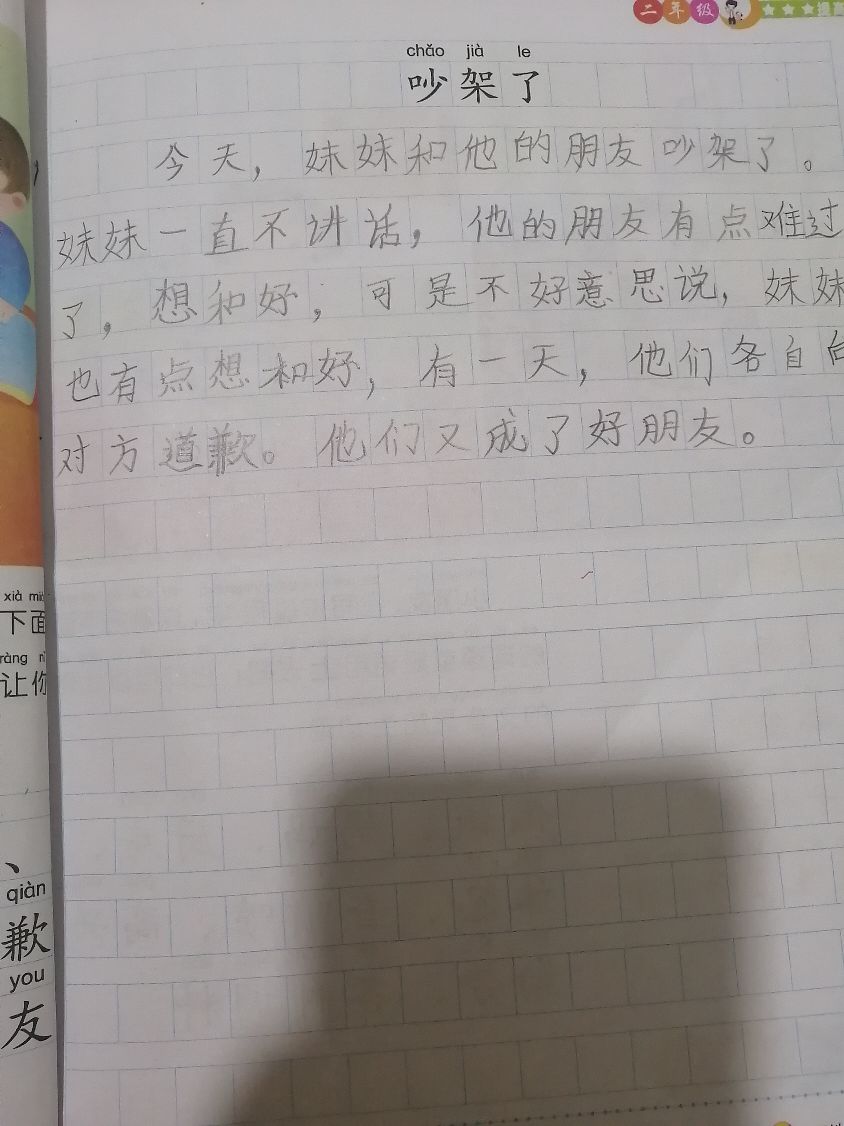 二年级
chǎo jià le
吵架了
今天，妹妹和他的朋友吵架了。
妹妹一直不讲话，他的朋友有点难过
了，想和好，可是不好意思说，妹妹
也有点想和好，有一天，他们各自向
对方道歉。他们又成了好朋友。
xià
下面
ràng
让你
、
qiàn
歉
you
友